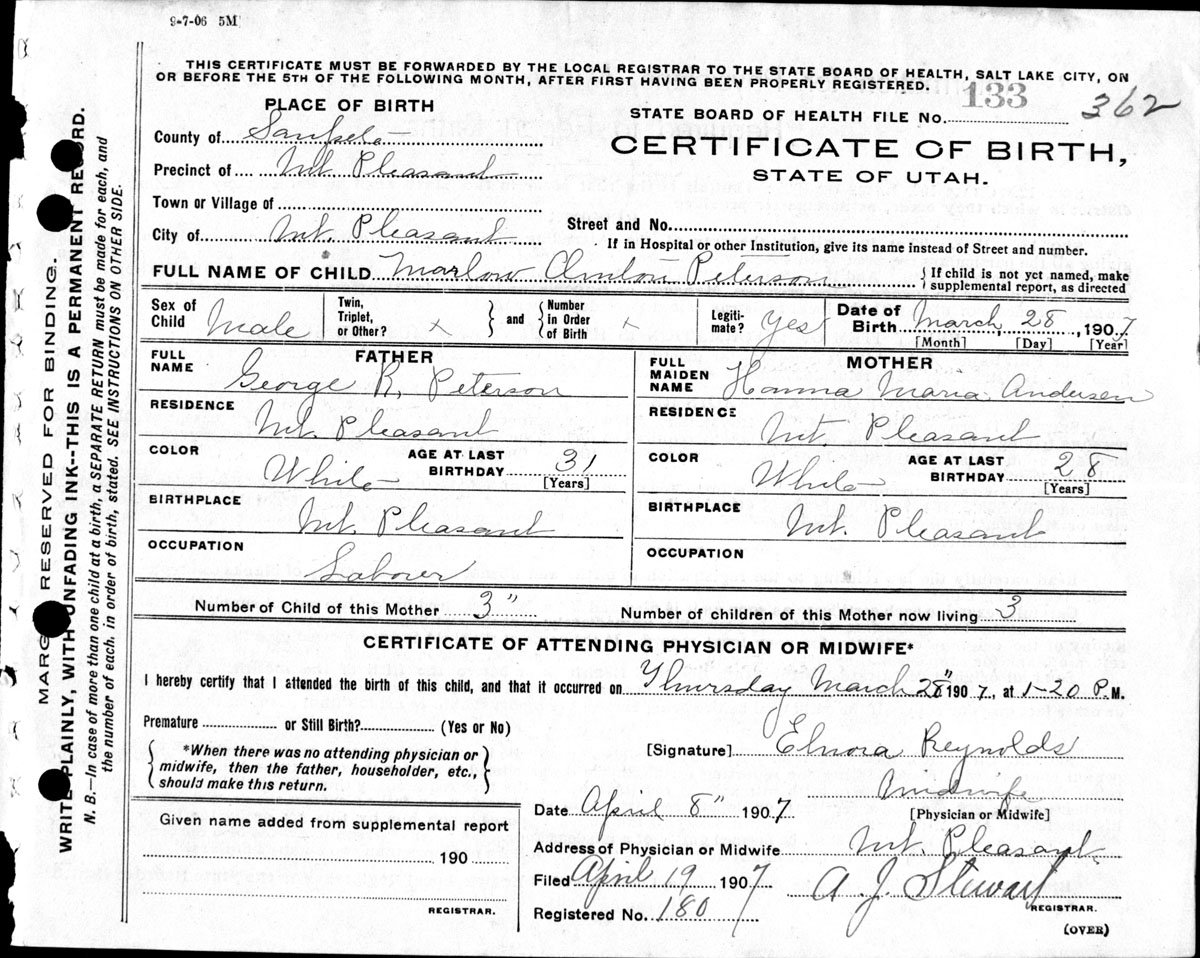 9-7-06 5M
THIS CERTIFICATE MUST BE FORWARDED BY THE LOCAL REGISTRAR TO THE STATE BOARD OF HEALTH, SALT LAKE CITY, ON
OR BEFORE THE 5TH OF THE FOLLOWING MONTH, AFTER FIRST HAVING BEEN PROPERLY REGISTERED.
133
362
PLACE OF BIRTH
STATE BOARD OF HEALTH FILE No.
County of Sanpete
CERTIFICATE OF BIRTH,
Precinct of Mt. Pleasant
STATE OF UTAH.
Town or Village of
City of Mt. Pleasant
Street and No.
If in Hospital or other Institution, give its name instead of Street and number.
FULL NAME OF CHILD Marlow Peterson
{If child is not yet named, make
supplemental report, as directed
Sex of Child Male
Twin, Triplet, or Other? x } and { Number in Order of Birth x
Legiti-mate? Yes
Date of Birth March, 28, 1907
[Month] [Day] [Year]
FATHER
FULL NAME George R. Peterson
RESIDENCE Mt. Pleasant
COLOR White AGE AT LAST BIRTHDAY 31
[Years]
BIRTHPLACE Mt. Pleasant
OCCUPATION Laborer
MOTHER
FULL MAIDEN NAME Hanna Maria Andersen
RESIDENCE Mt. Pleasant
COLOR White AGE AT LAST BIRTHDAY 28
[Years]
BIRTHPLACE Mt. Pleasant
OCCUPATION
Number of Child of this Mother 3" Number of children of this Mother now living 3
CERTIFICATE OF ATTENDING PHYSICIAN OR MIDWIFE*
I hereby certify that I attended the birth of this child, and that it occurred on Thursday March 28" 1907, at 1-20 P.M.
Premature or Still Birth? (Yes or No)
{*When there was no attending physician or
midwife, then the father, householder, etc.,
should make this return.}
[Signature] Elnora Reynolds
Midwife
Date April 8" 1907
[Physician or Midwife]
Given name added from supplemental report
190
REGISTRAR.
Address of Physician or Midwife Mt. Pleasant.
Filed April 19 1907
A. J. Stewart
REGISTRAR.
Registered No. 180
(OVER)
RESERVED FOR BINDING.
WRITE PLAINLY, WITH UNFADING INK--THIS IS A PERMANENT RECORD.
N. B.—In case of more than one child at a birth, a SEPARATE RETURN must be made for each, and
the number of each, in order of birth, stated. SEE INSTRUCTIONS ON OTHER SIDE.